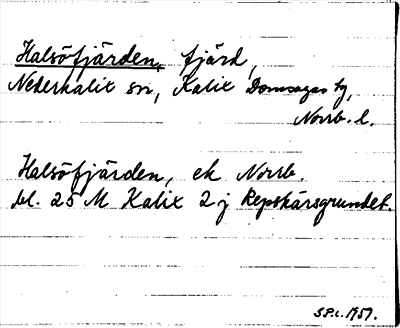 Halsöfjärden, fjärd,
Nederkalix sn, Kalix Domsagas tg,
Norrb. l.
Halsöfjärden, ek Norrb.
bl. 25 M Kalix 2 j Repskärsgrundet.
SPc. 1957.